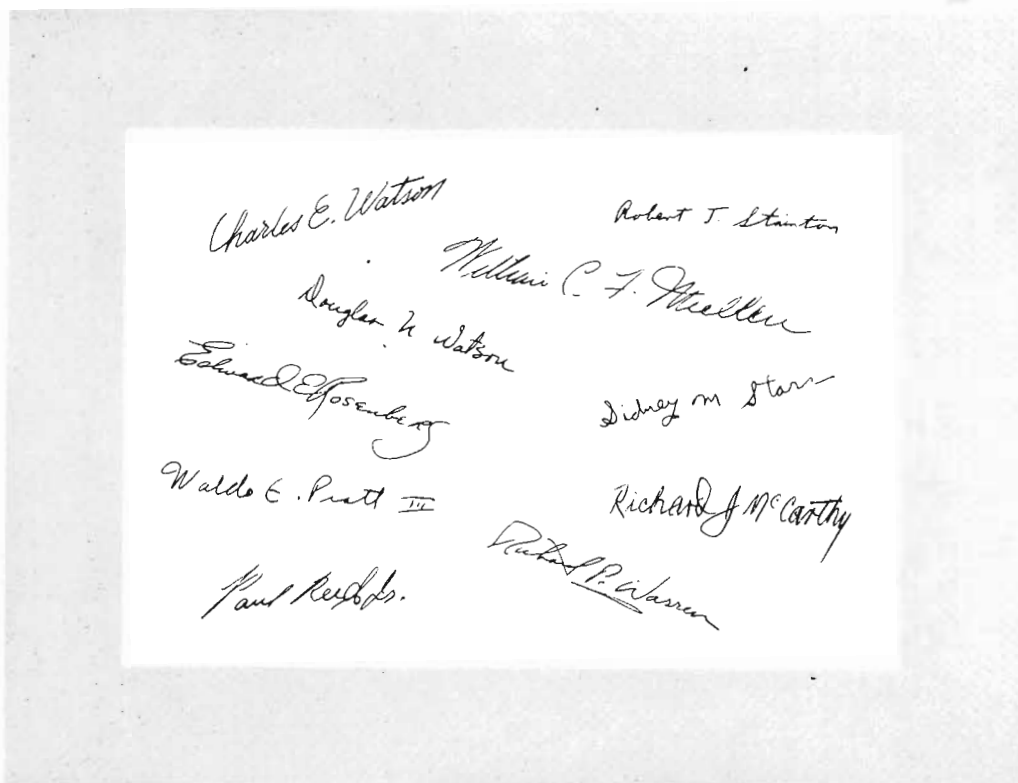 Charles E. Watson
Robert T. Stainton
William C. F. Mueller
Douglas N Watson
Edward E Rosenberg
Sidney M Starr
Waldo E. Pratt III
Richard J McCarthy
Richard P. Warren
Paul Jr.